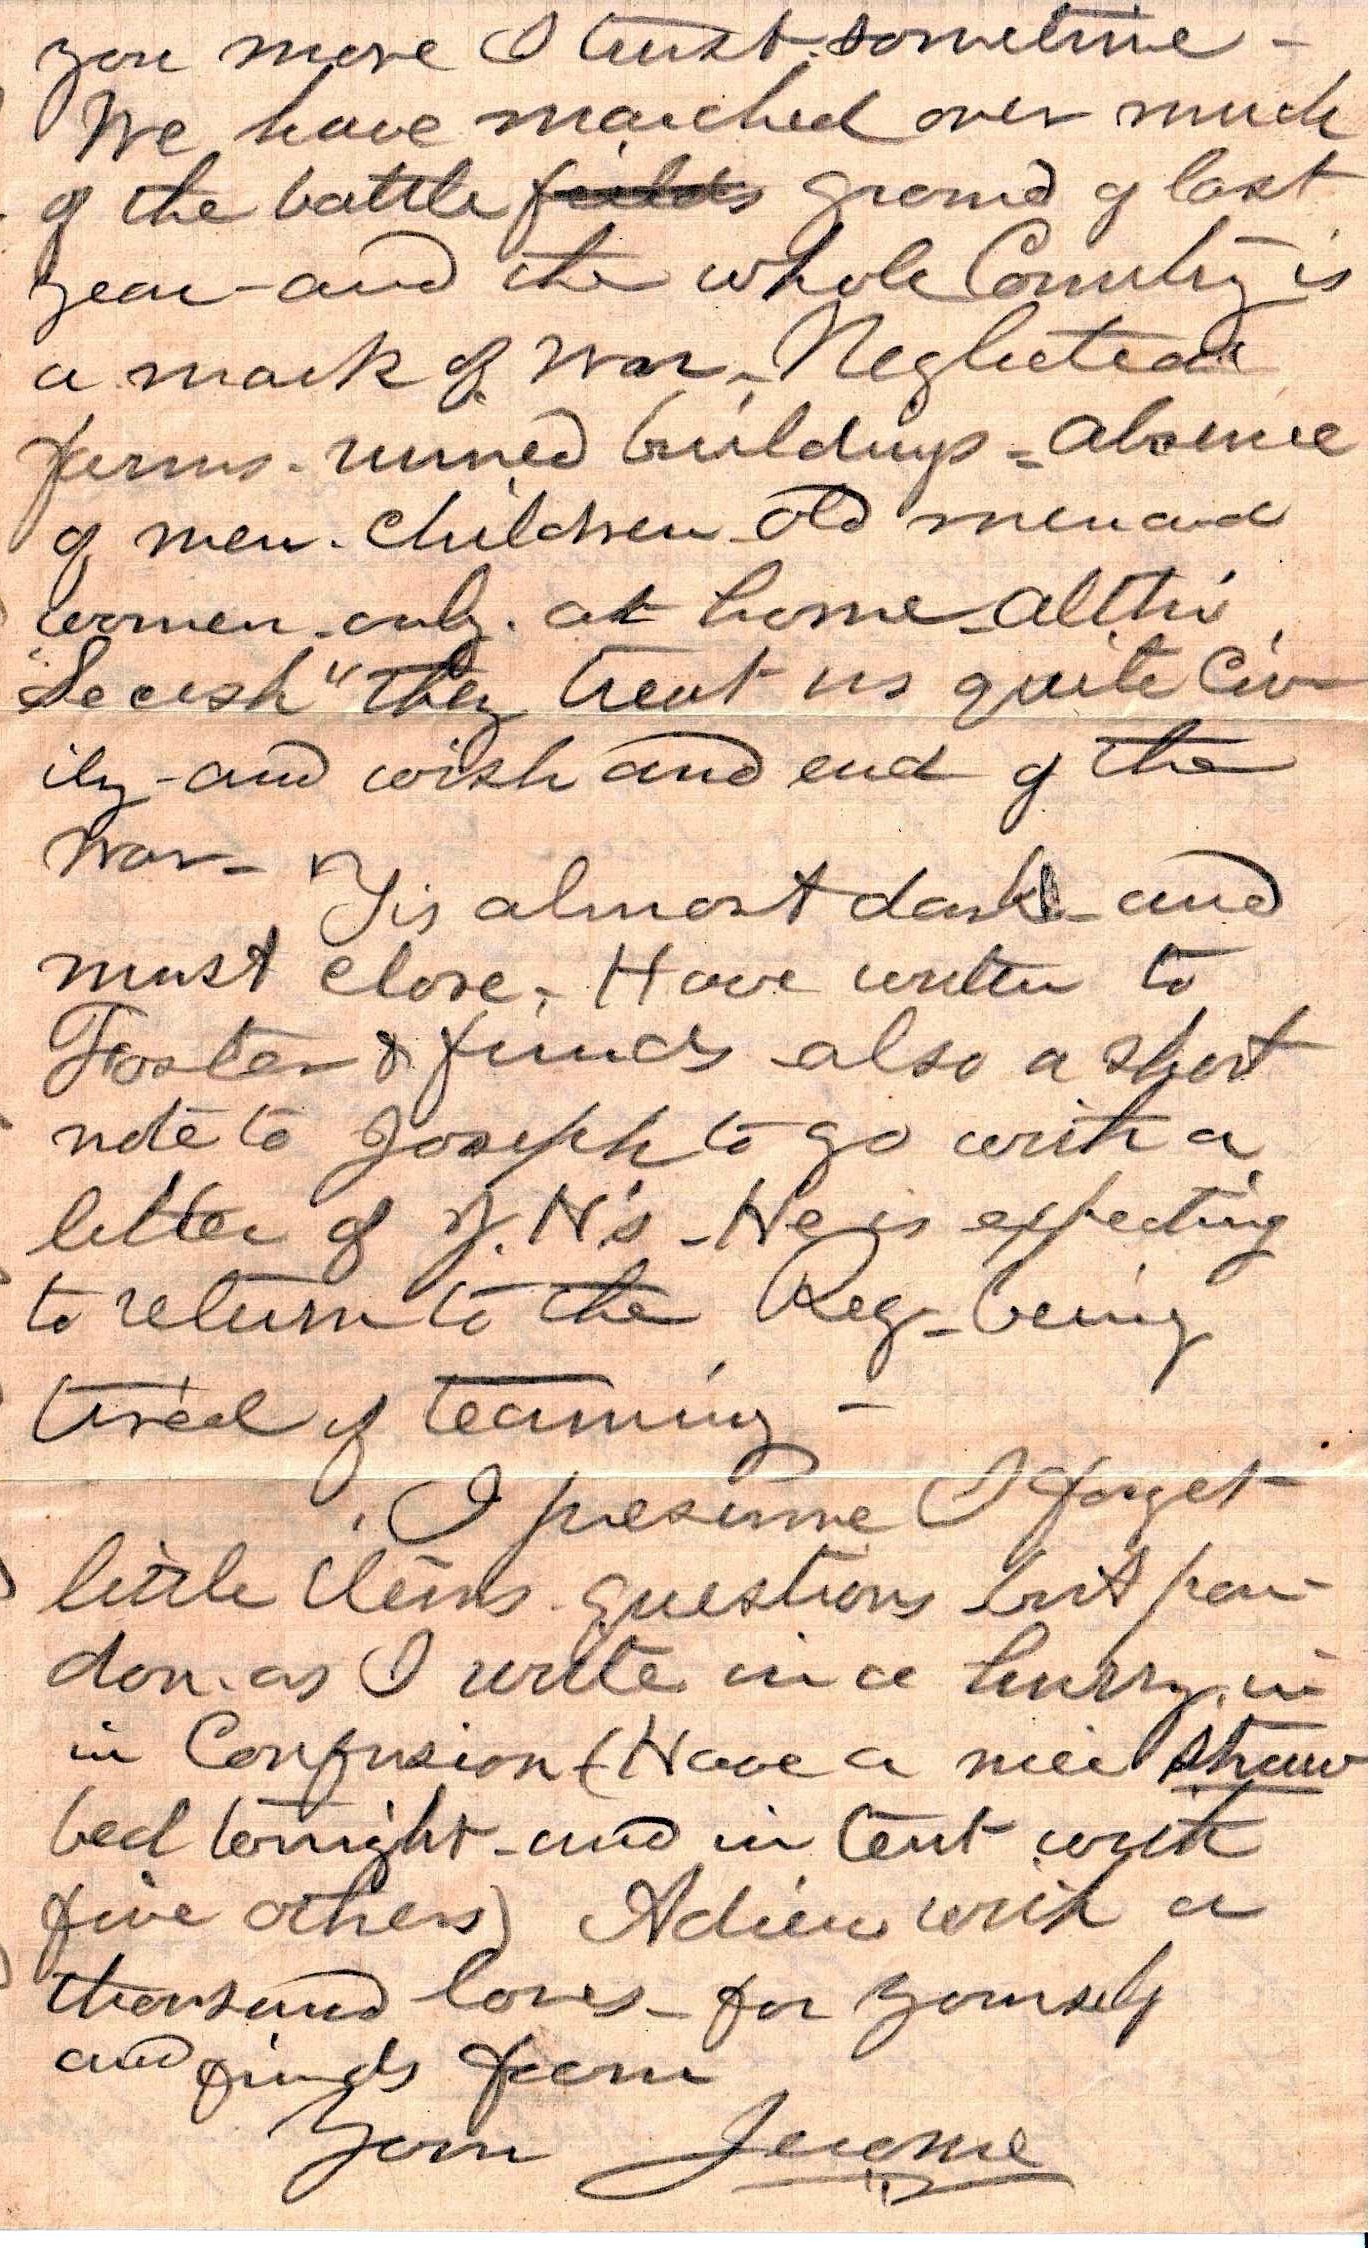 you more I trust sometime -
We have marched over much
of the battle fields ground of last
year - and the whole Country is
a mark of War - Neglected
farms - ruined buildings - absence
of men. Children old men and
women only at home - altho'
"Secesh" they treat us quite Civ-
ily - and wish and end of the
War - 
'Tis almost dark - and
must close. - Have written to
Foster & friends also a short
note to Joseph to go with a
letter of J. H's - He is expecting
to return to the Reg - being
tired of teaming -
I presume I forget
little items questions but par-
don. as I write in a hurry. in
in Confusion (Have a nice straw
bed tonight - and in tent with
five others) Adieu with a
thousand loves - for yourself
and friends from
Your Jerome